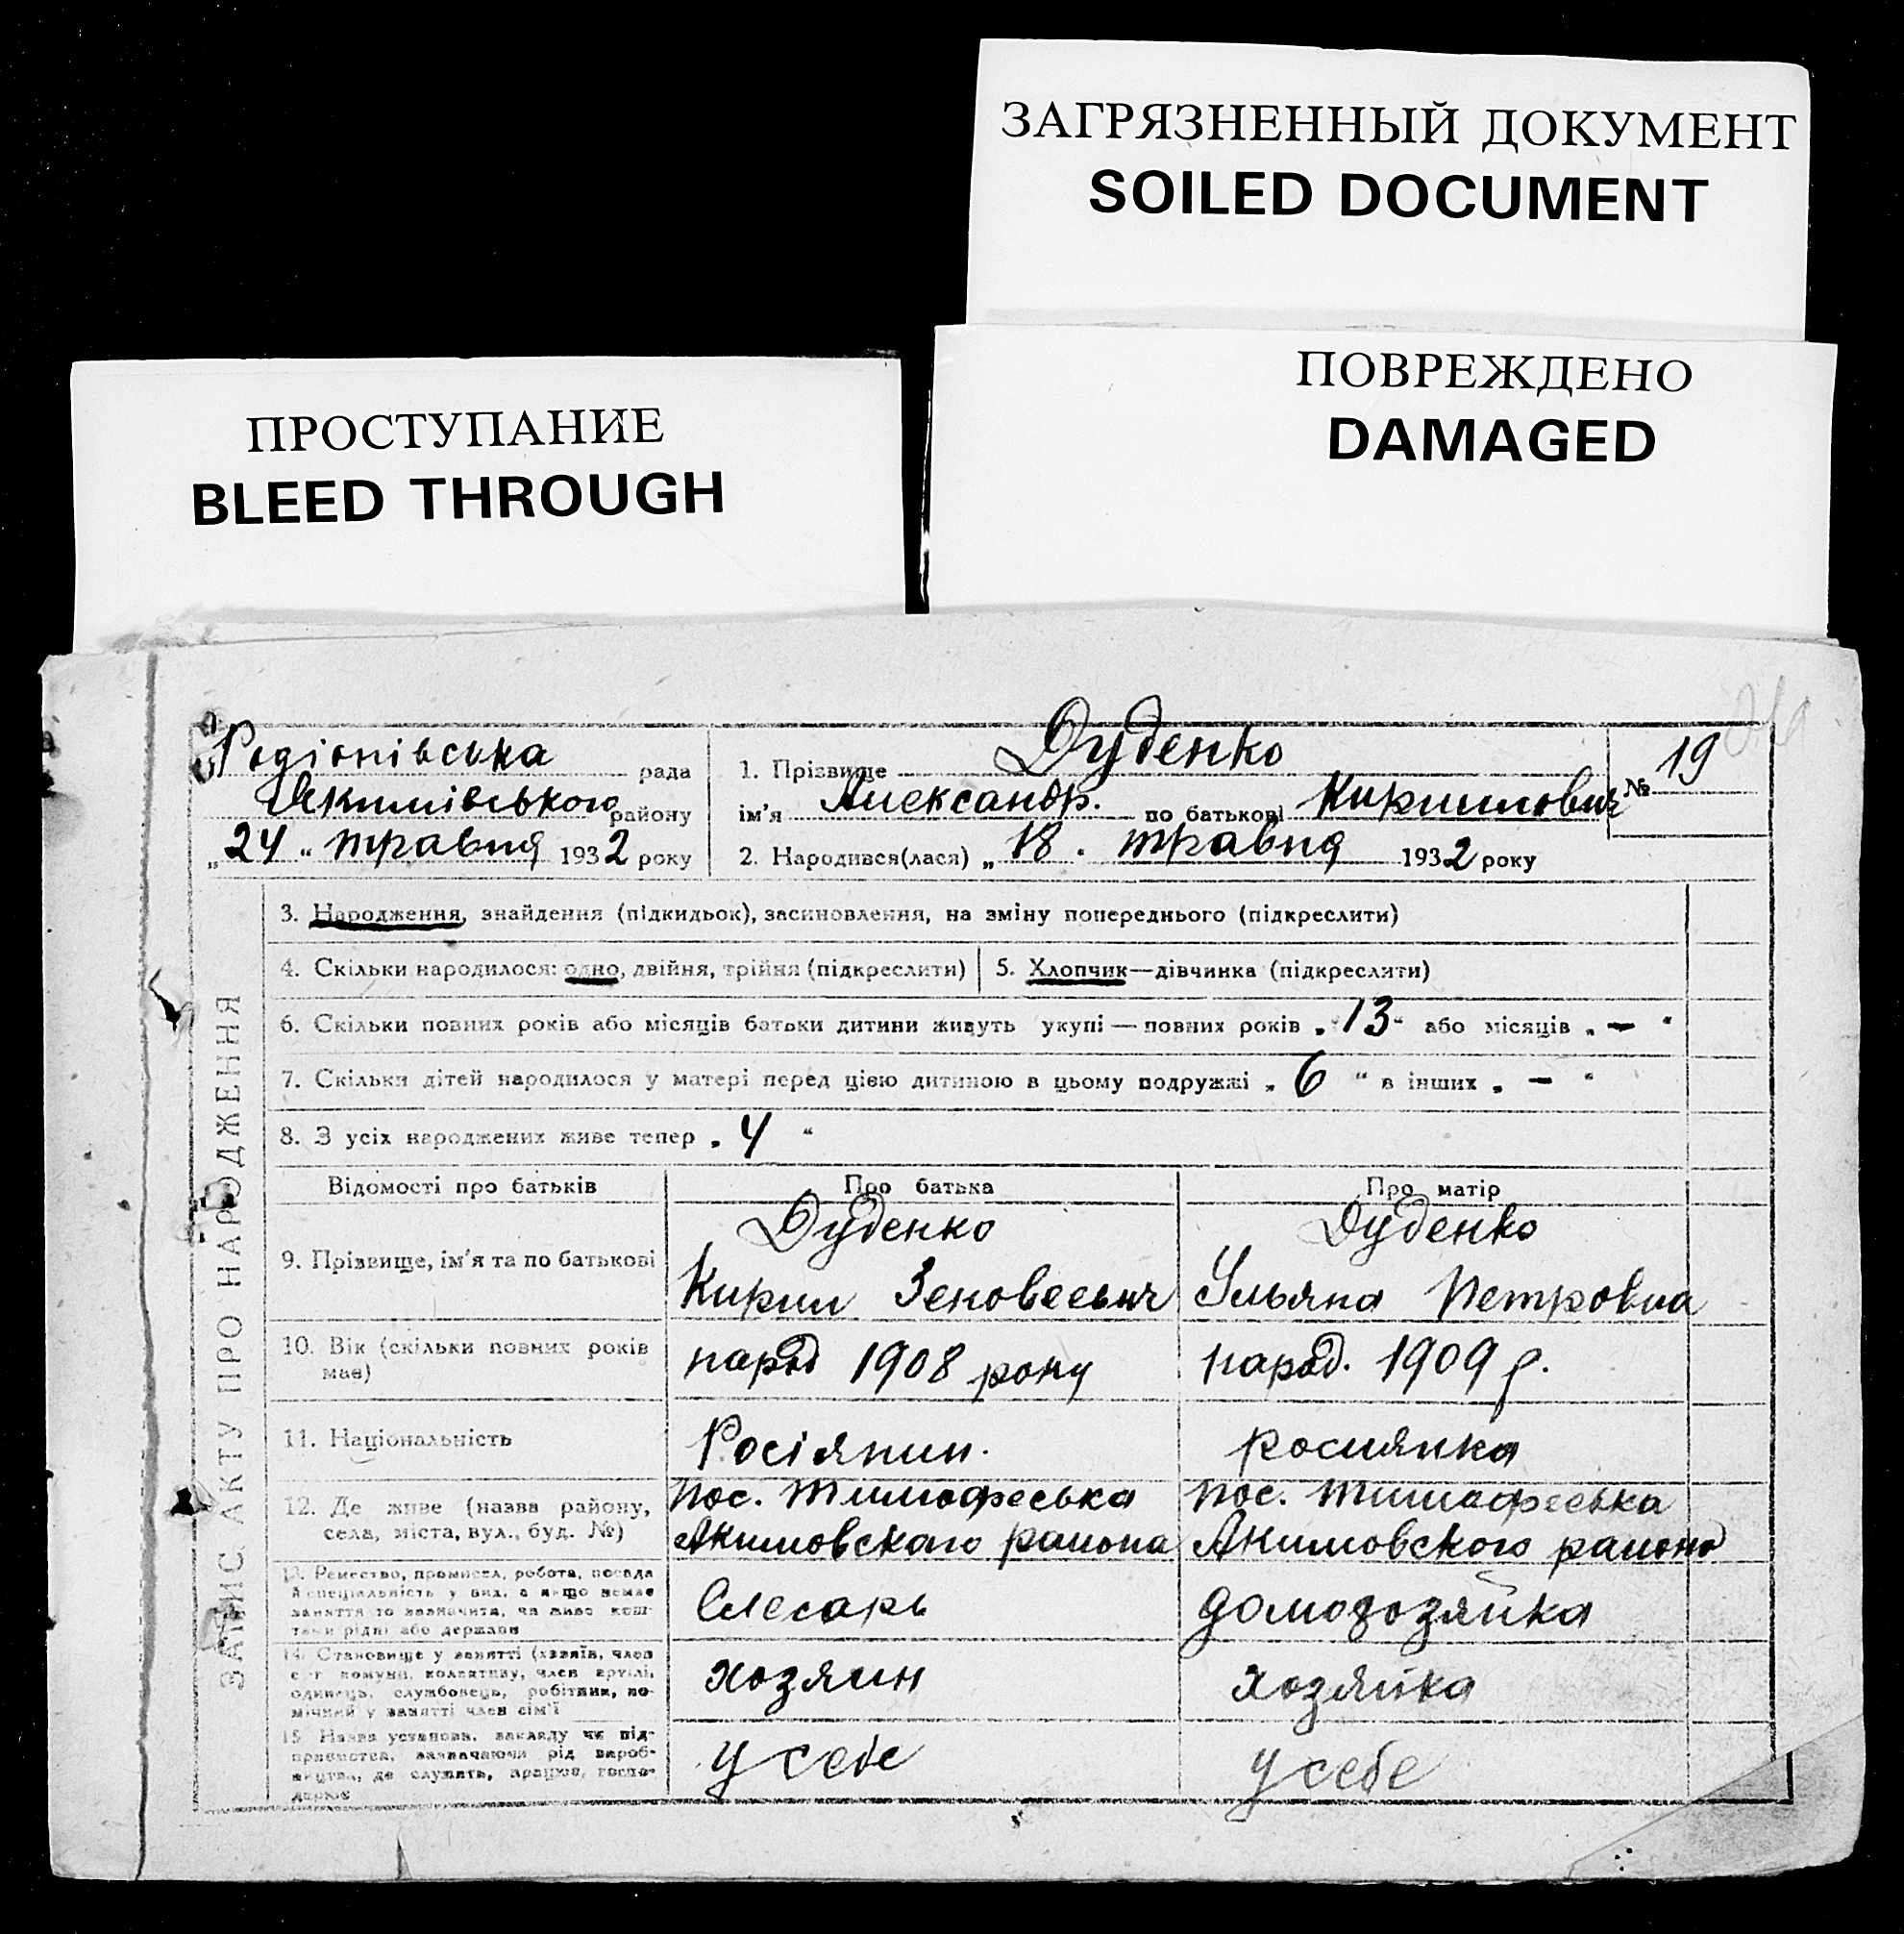 ЗАГРЯЗНЕННЫЙ ДОКУМЕНТ
SOILED DOCUMENT
ПОВРЕЖДЕНО
DAMAGED
ПРОСТУПАНИЕ
BLEED THROUGH
Родіонівська рада
Якимівського району
„24“ травня 1932 року
1. Прізвище Дуденко
ім'я Александр. по батькові Кирилович
№ 19
2. Народився(лася) „18. травня 1932 року
ЗАПИС АКТУ ПРО НАРОДЖЕННЯ
3. Народження, знайдення (підкидьок), засиновлення, на зміну попереднього (підкреслити)
4. Скільки народилося: одно, двійня, трійня (підкреслити)
5. Хлопчик—дівчинка (підкреслити)
6. Скільки повних років або місяців батьки дитини живуть укупі — повних років „13“ або місяців „—“
7. Скільки дітей народилося у матері перед цією дитиною в цьому подружжі „6“ в інших „—“
8. З усіх народжених живе тепер „4“
Відомості про батьків Про батька Про матір
9. Прізвище, ім'я та по батькові
Дуденко
Кирил Зеновеевич
Дуденко
Ульяна Петровна
10. Вік (скільки повних років
має)
народ 1908 року
народ. 1909 р.
11. Національність
Росіянин.
росиянка
12. Де живе (назва району,
села, міста, вул., буд. №)
пос. Тимофеевка
Акимовского района
пос. Тимофеевка
Акимовского района
13. Ремество, промисел, робота, посада
й спеціяльність у них, а якщо немає
заняття то зазначити, чи живе кош-
тами рідні або держави
Слесарь
домохозяйка
14. Становище у занятті (хазяїн, член
с.-г комуни, колективу, член артілі,
одинець, службовець, робітник, по-
мічний у занятті член сім'ї
хозяин
хозяйка
15. Назва установи, закладу чи під-
приємства, зазначаючи рід вироб-
ництва, де служить, працює, госпо-
дарює
у себе
у себе